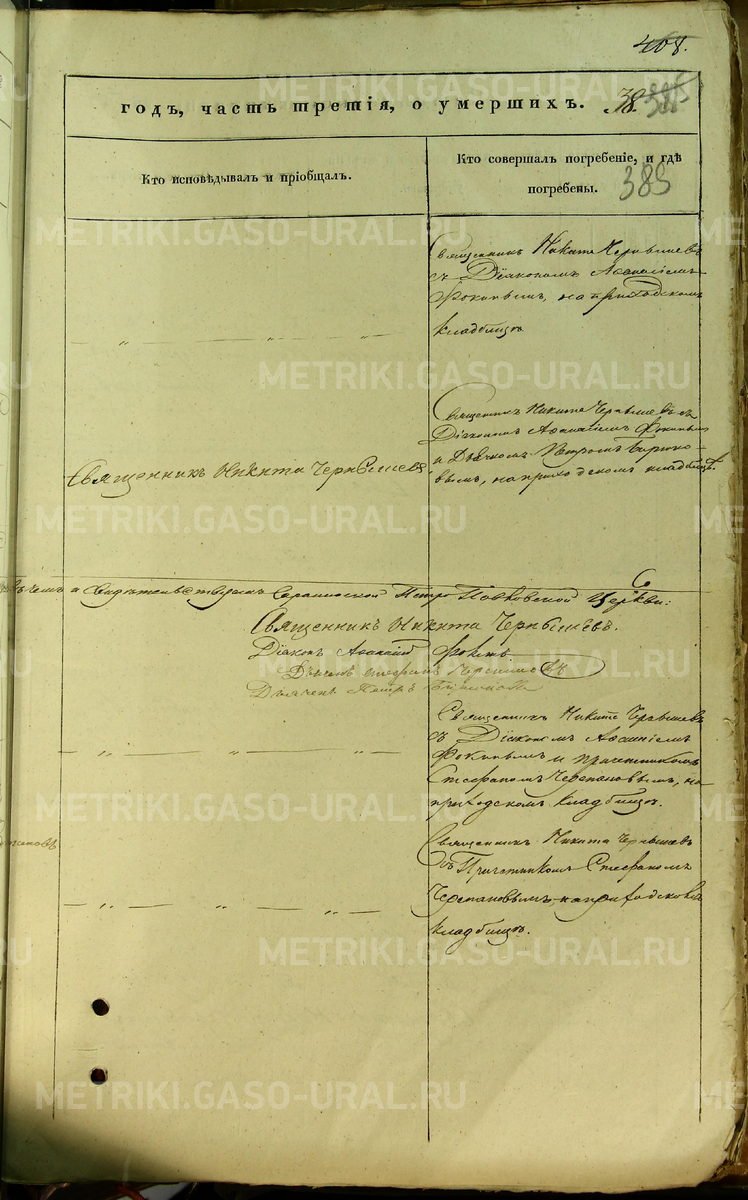 408.
годъ, часть третія, о умершихъ. 38. 385
Кто исповѣдывалъ и пріобщалъ.
Кто совершалъ погребеніе, и гдѣ
погребены.
385
Священникъ Никита Чернышевъ
съ Діакономъ Аѳанасіемъ
Фокинымъ, на приходскомъ
кладбищѣ.
Священникъ Никита Чернышевъ съ
Діакономъ Аѳанасіемъ Фокинымъ
и Дьячкомъ Петромъ Бирюко-
вымъ, на приходскомъ кладбищѣ.
Священникъ Никита Чернышевъ
и Свидѣтельствуемъ Петро Павловской Церкви:
Священникъ Никита Чернышевъ.
Діаконъ Аѳанасій Фокинъ
Дьячекъ Стефанъ Черепановъ
Дьячекъ Петръ Бирюковъ
Священникъ Никита Чернышевъ
съ Діакономъ Аѳанасіемъ
Фокинымъ и причетникомъ
Стефаномъ Черепановымъ, на
приходскомъ кладбищѣ.
Священникъ Никита Чернышевъ
съ Причетникомъ Стефаномъ
Черепановымъ на приходскомъ
кладбищѣ.
METRIKI.GASO-URAL.RU